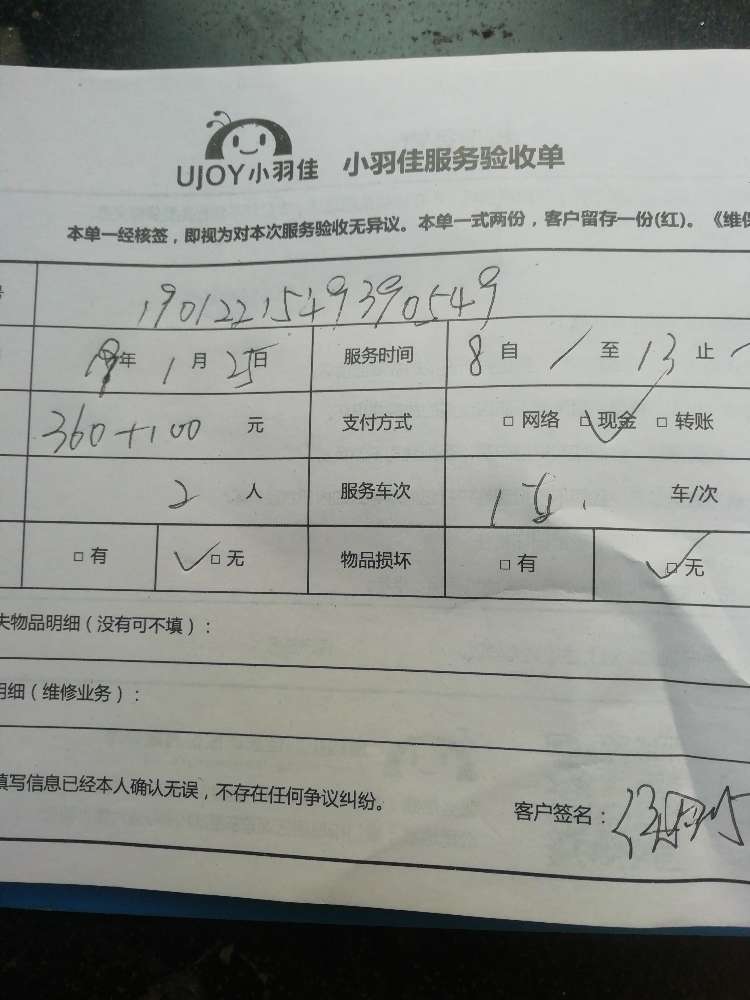 UJOY小羽佳 小羽佳服务验收单
本单一经核签，即视为对本次服务验收无异议。本单一式两份，客户留存一份(红)。《维保
号 190122154939 0549
19年 1月 25日 服务时间 8自 / 至 13止
360+100 元 支付方式 □ 网络 □ 现金 □ 转账
2 人 服务车次 1 车/次
□ 有 □ 无 物品损坏 □ 有 □ 无
失物品明细（没有可不填）：
明细（维修业务）：
填写信息已经本人确认无误，不存在任何争议纠纷。
客户签名：